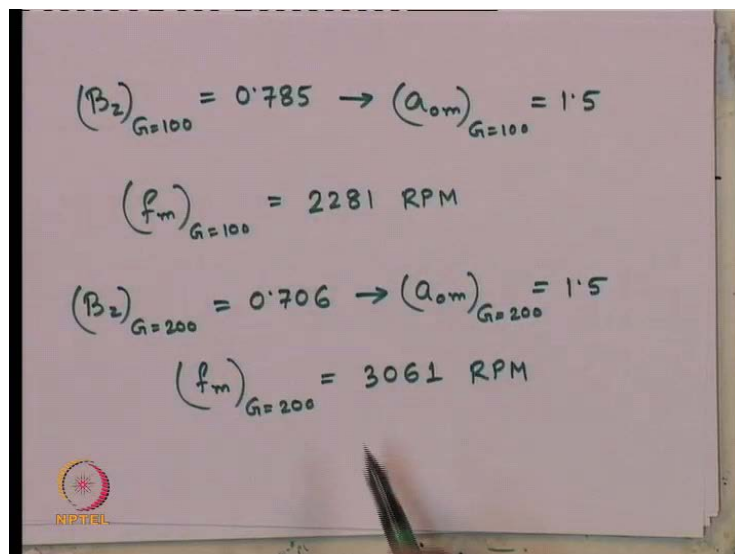 (B_z)_{G=100} = 0.785 → (a_{om})_{G=100} = 1.5
(f_m)_{G=100} = 2281 RPM
(B_z)_{G=200} = 0.706 → (a_{om})_{G=200} = 1.5
(f_m)_{G=200} = 3061 RPM
NPTEL